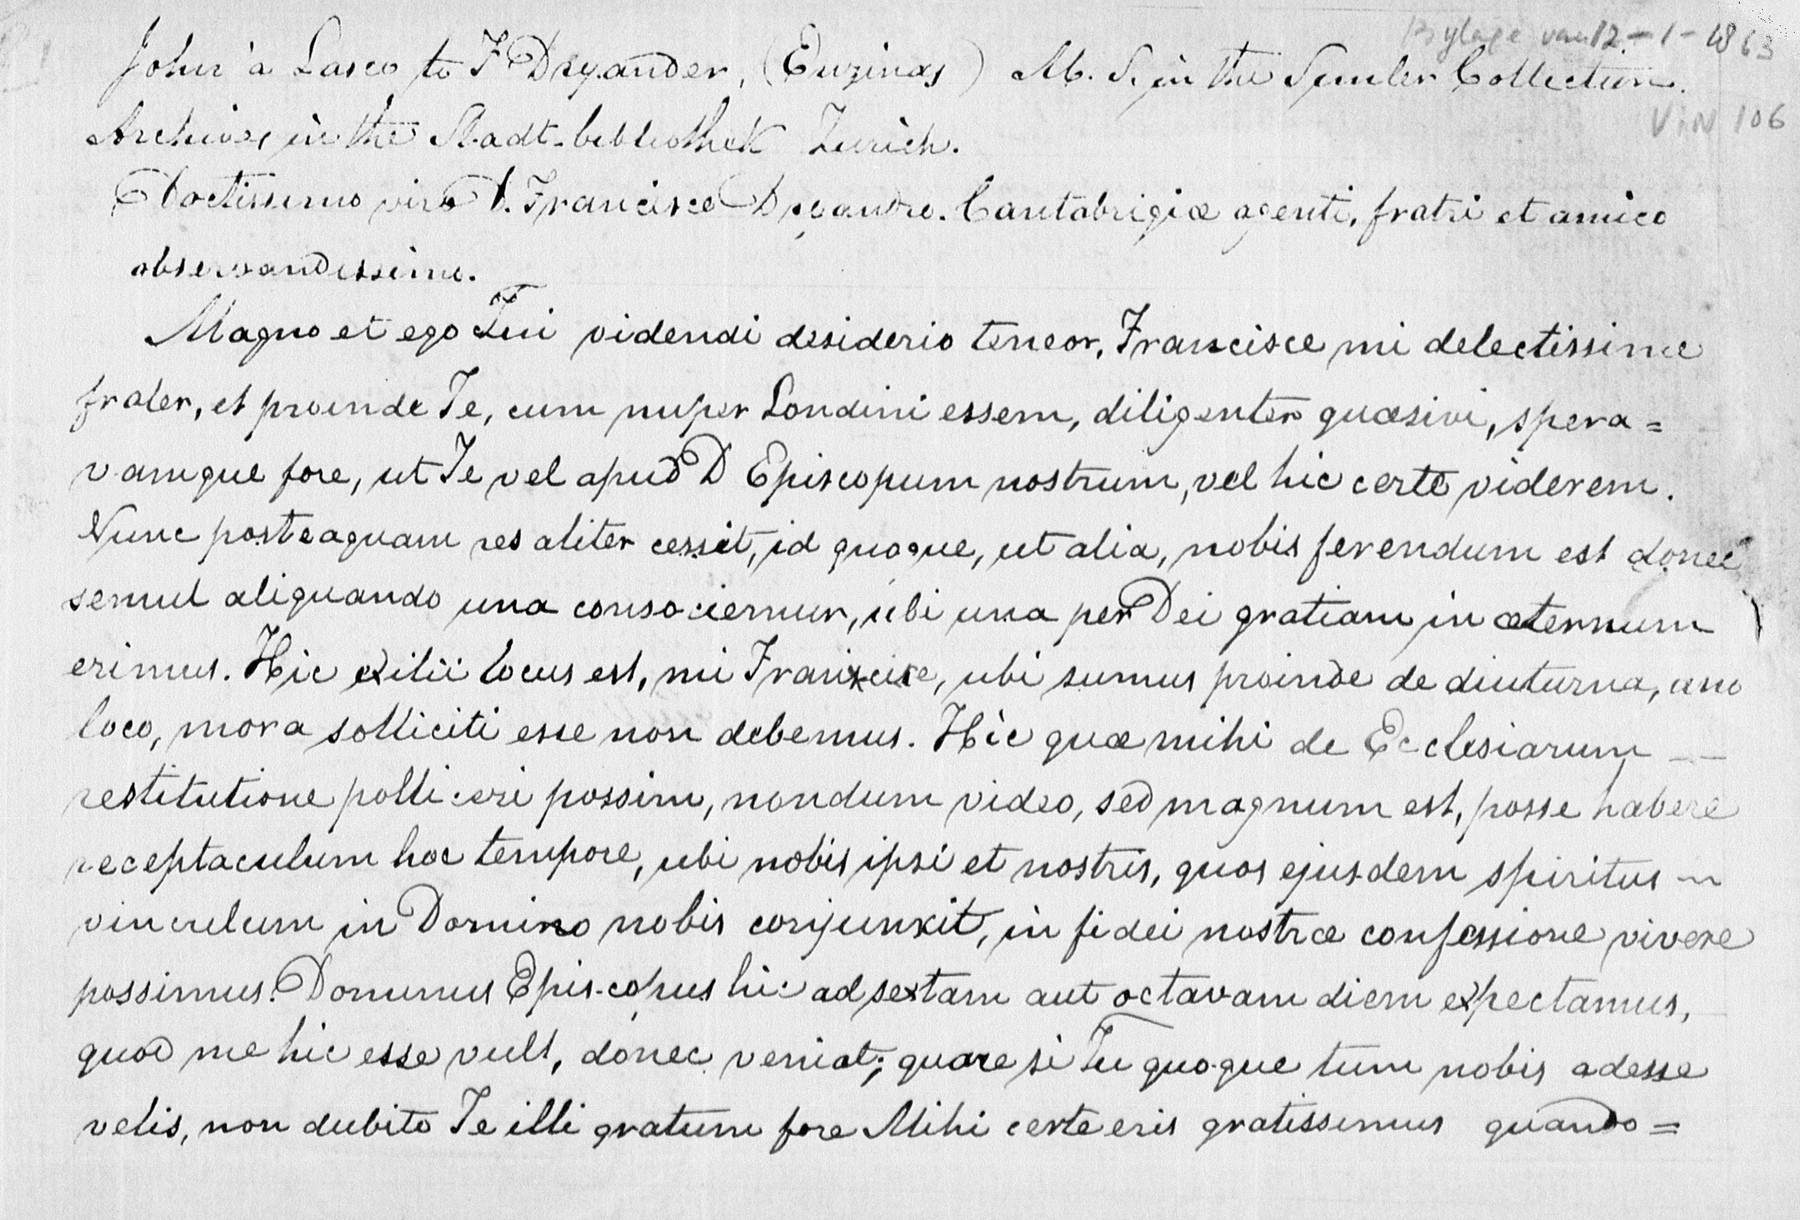 Bylage van 12-1-1863
John à Lasco to F Dryander, (Enzinas) M. S. in the Simler Collection.
VAN 106
Archives in the Stadt-bibliothek Zurich.
Doctissimo viro D. Francisco Dryandro. Cantabrigiæ agenti, fratri et amico
observandissimo.
Magno et ego Tui videndi desiderio teneor, Francisce mi delectissime
frater, et proinde Te, cum nuper Londini essem, diligenter quæsivi, spera=
vamque fore, ut Te vel apud D Episcopum nostrum, vel hic certe viderem.
Nunc posteaquam res aliter cessit, id quoque, ut alia, nobis ferendum est donec
semul aliquando una consociemur, ubi una per Dei gratiam in æternum
erimus. Hic exilii locus est, mi Francisce, ubi sumus proinde de diuturna, uno
loco, mora solliciti esse non debemus. Hic quæ mihi de Ecclesiarum
restitutione polliceri possim, nondum video, sed magnum est, posse habere
receptaculum hoc tempore, ubi nobis ipsi et nostris, quos ejusdem spiritus
vinculum in Domino nobis conjunxit, in fidei nostræ confessione vivere
possimus. Dominus Episcopus hic ad sextam aut octavam diem expectamus,
quod me hic esse vult, donec veniat; quare si Tu quoque tum nobis adesse
velis, non dubito Te illi gratum fore Mihi certe eris gratissimus quando=